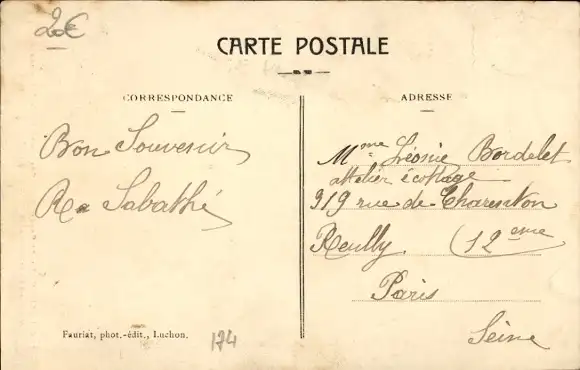 20€
CARTE POSTALE
CORRESPONDANCE
Bon Souvenir
Sabathé
Fauriat, phot.-édit., Luchon.
174
ADRESSE
Mme Léonie Bordelet
attelier
319 rue de Charenton
Reuilly (12eme
Paris
Seine